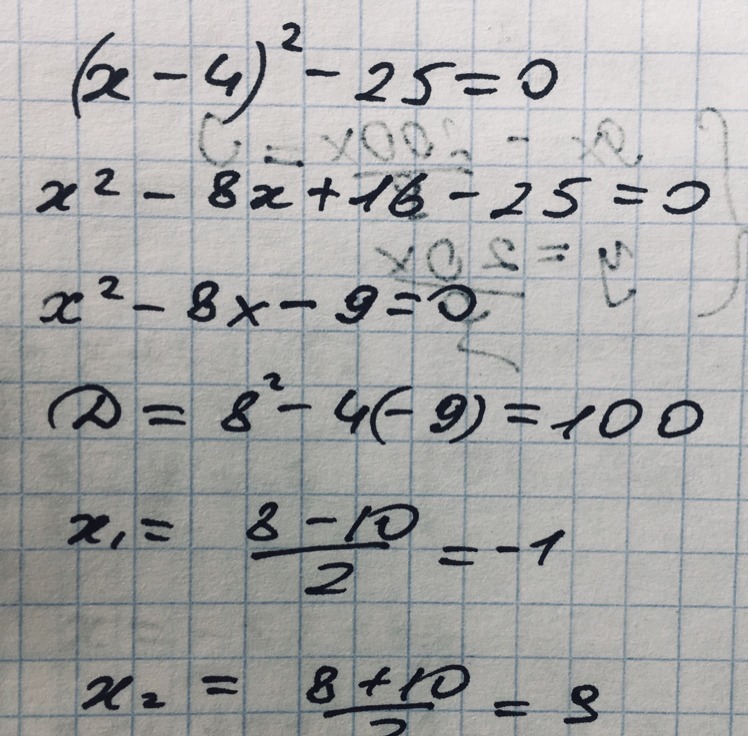 (x - 4)² - 25 = 0
x² - 8x + 16 - 25 = 0
x² - 8x - 9 = 0
D = 8² - 4(-9) = 100
x₁ = (8 - 10)/2 = -1
x₂ = (8 + 10)/2 = 9